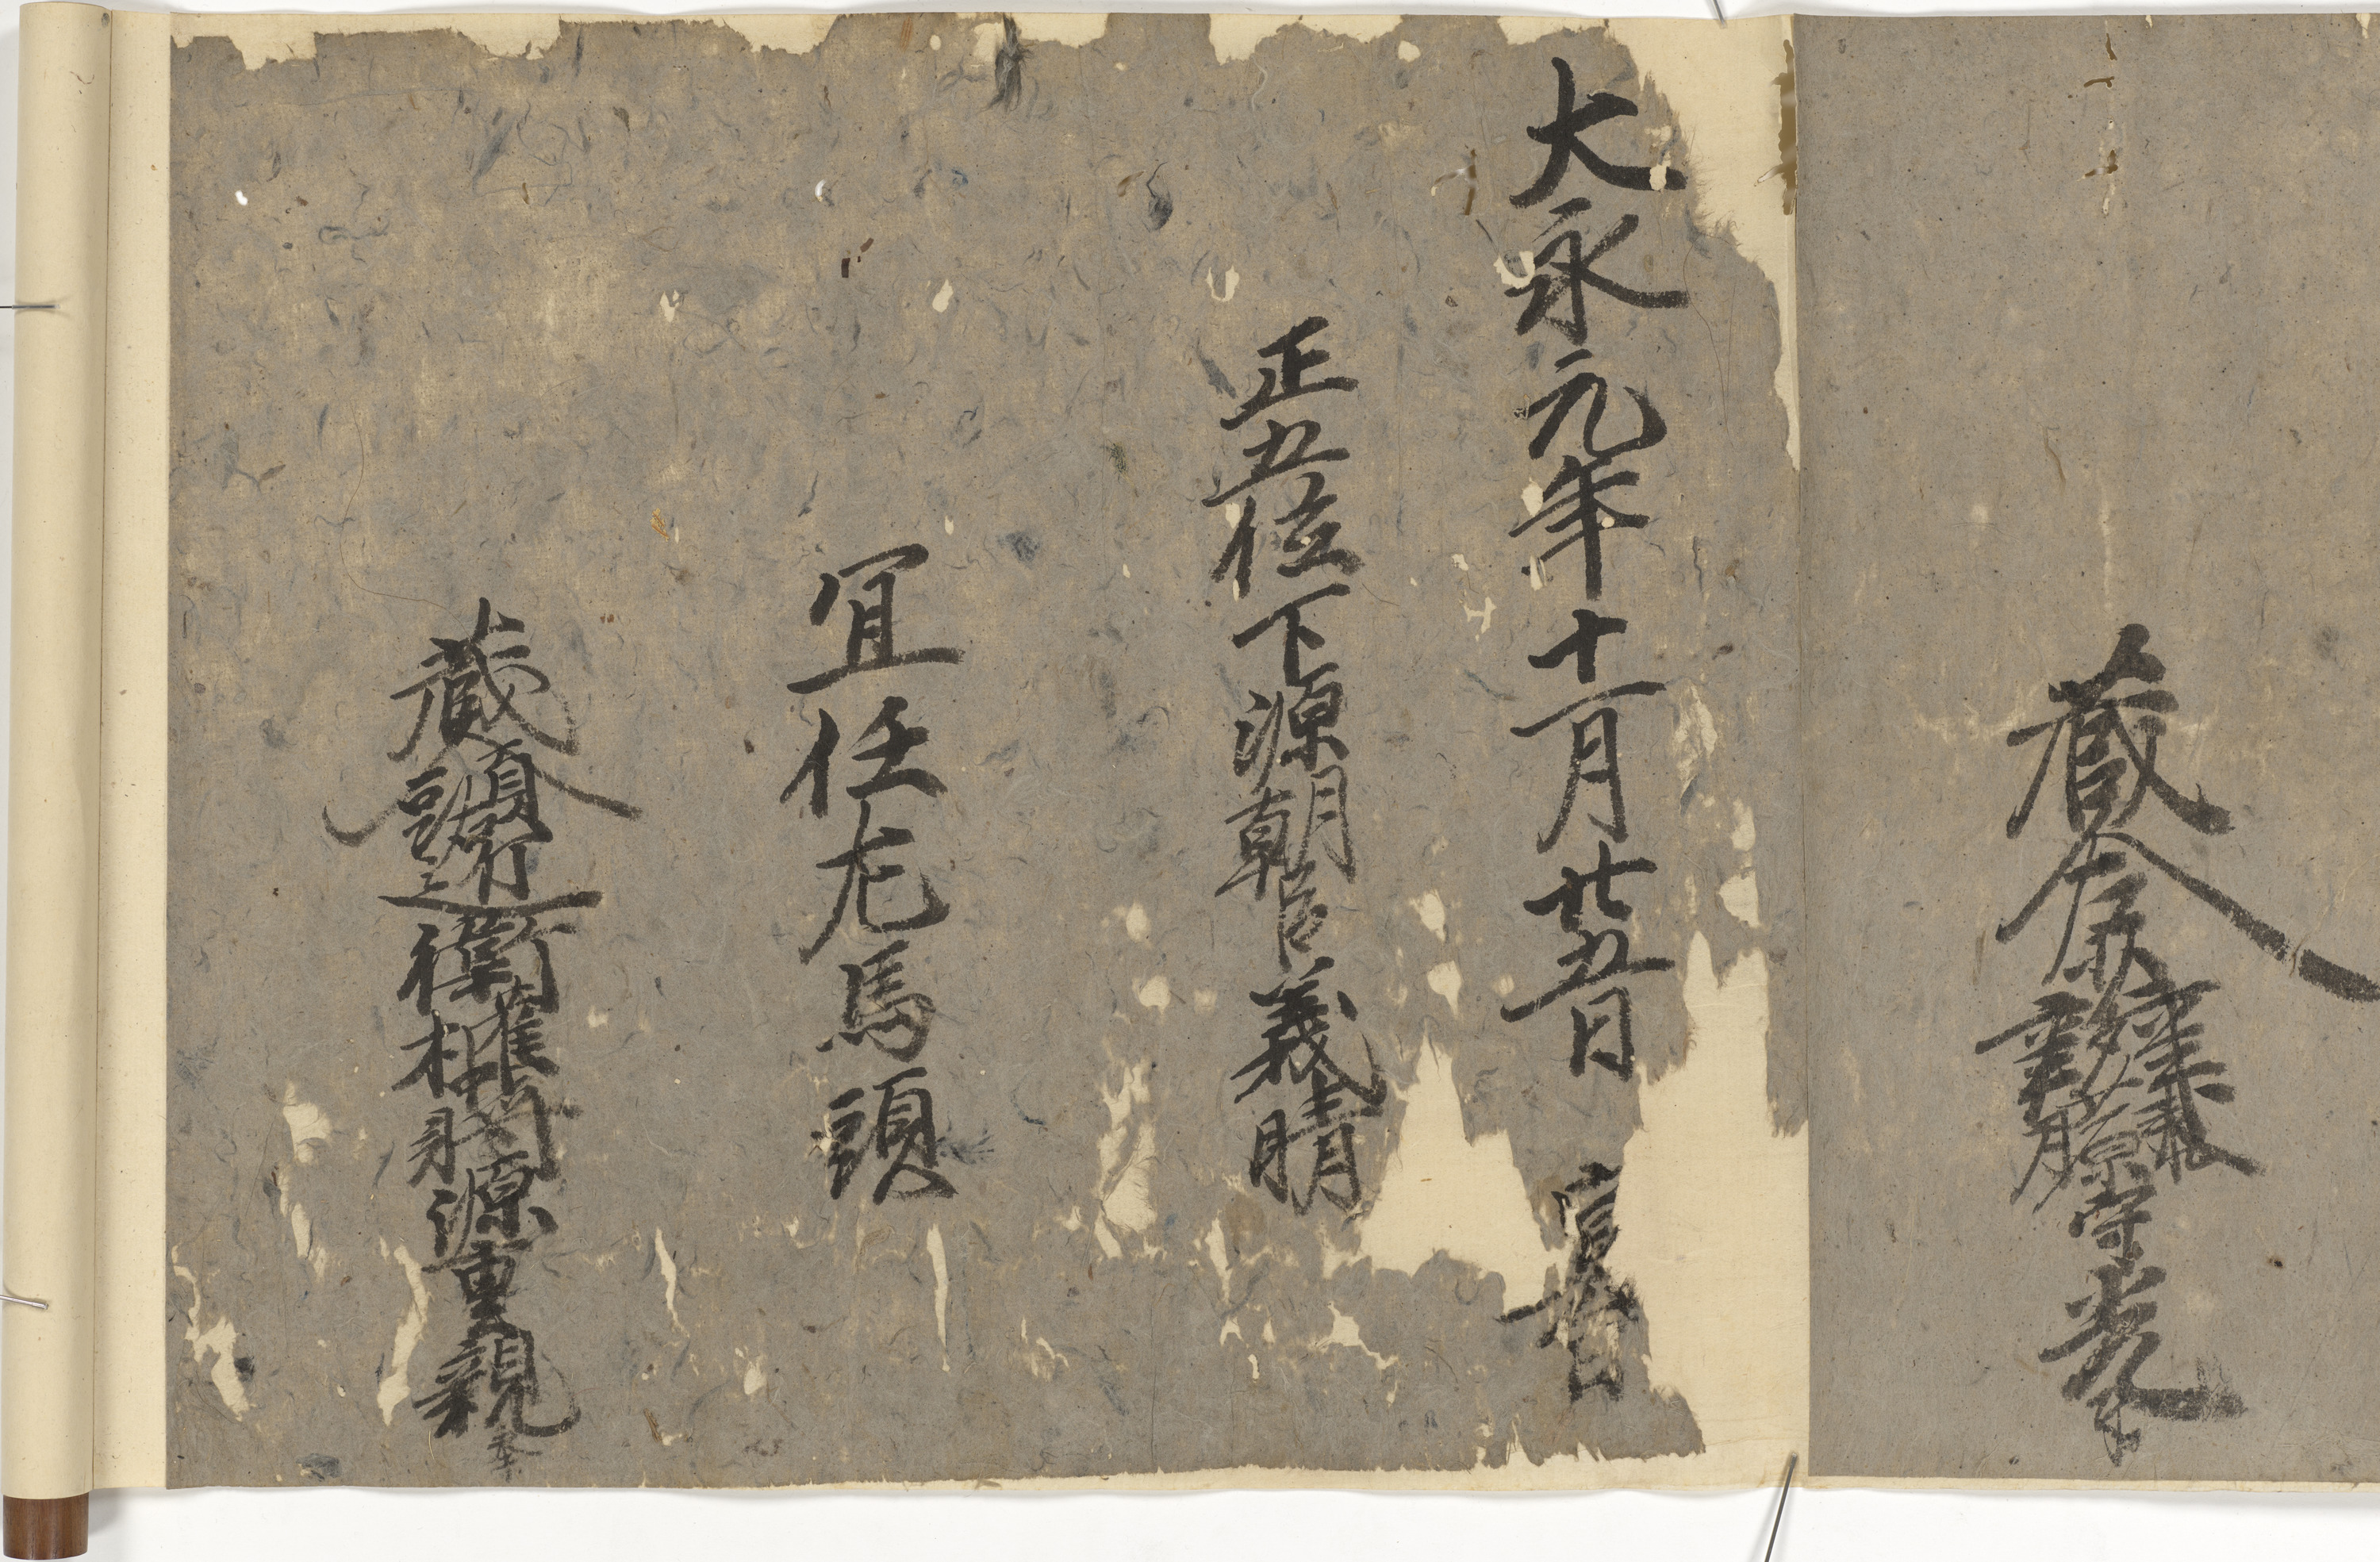 蔵人藤原守光奉
大永元年十一月廿五日 宣旨
正五位下源朝臣義晴
宜任左馬頭
蔵人頭右近衛権中将源重親奉